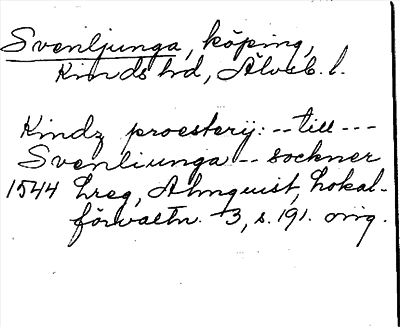 Svenljunga, köping,
Kinds hd, Älvsb. l.
Kindz proesterij: -- till ---
Svenliunga -- sockner
1544 Lreg, Almquist, Lokal-
förvaltn. 3, s. 191. orig.